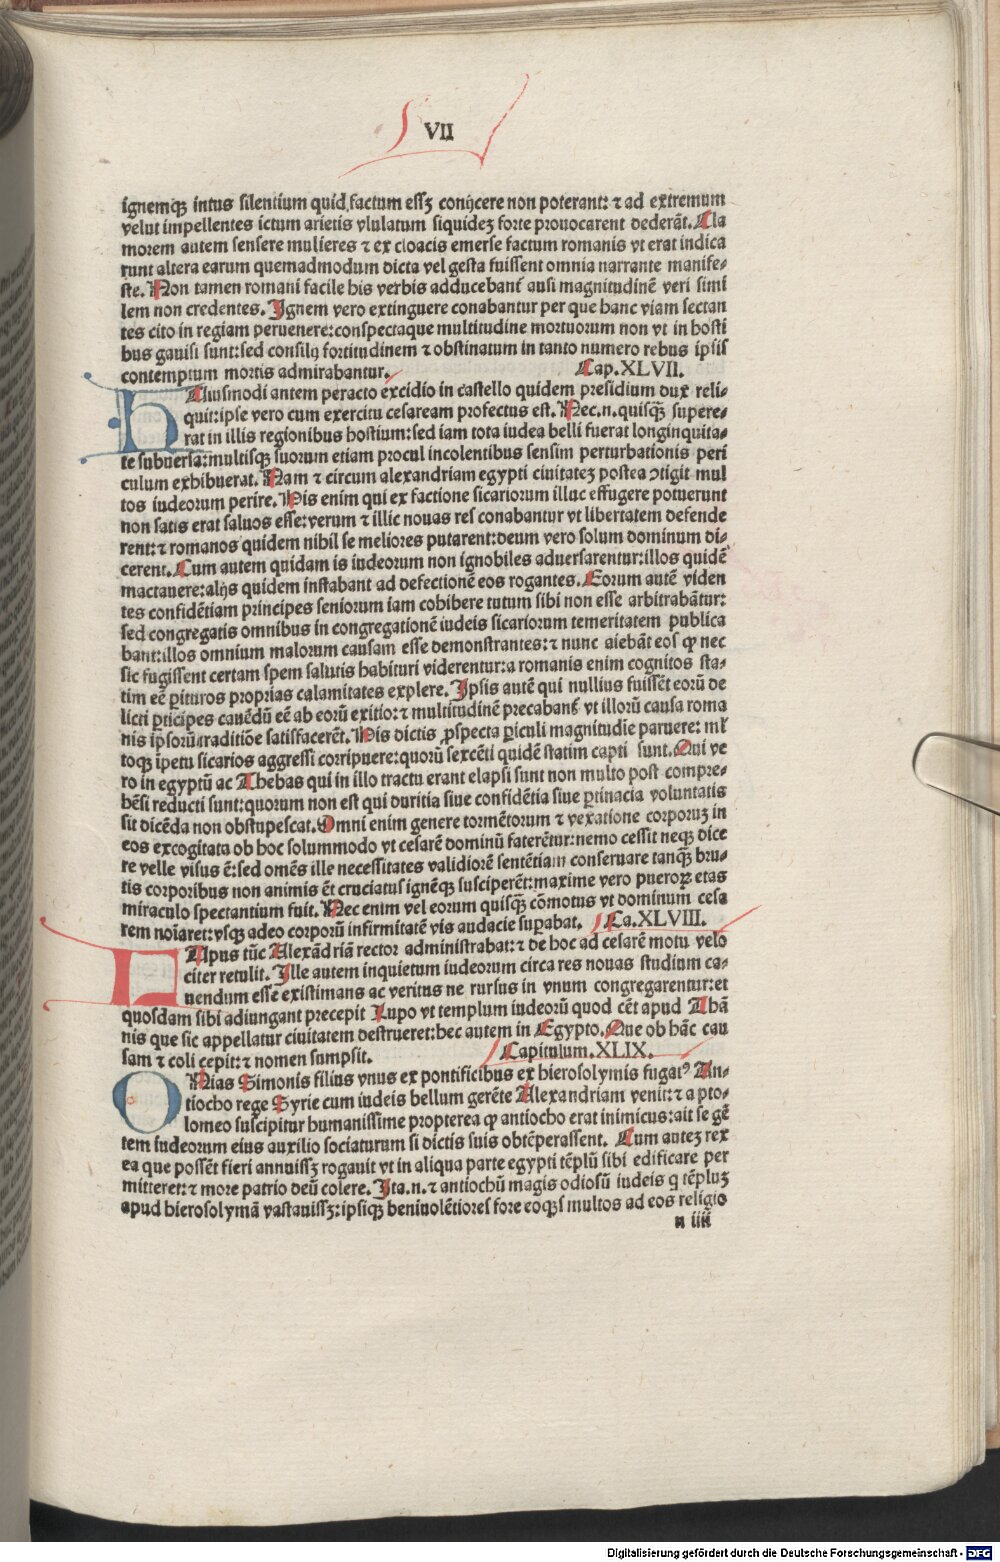 VII
ignemqꝫ intus silentium quid factum essꝫ conijcere non poterant: ⁊ ad extremum
velut impellentes ictum arietis vlulatum siquidez forte prouocarent dederāt. Cla
morem autem sensere mulieres ⁊ ex cloacis emerse factum romanis vt erat indica
runt altera earum quemadmodum dicta vel gesta fuissent omnia narrante manife-
ste. Non tamen romani facile his verbis adducebant̄ ausi magnitudinē veri simi
lem non credentes. Ignem vero extinguere conabantur per que hanc viam sectan
tes cito in regiam peruenere: conspectaque multitudine mortuorum non vt in hosti
bus gauisi sunt: sed consilij fortitudinem ⁊ obstinatum in tanto numero rebus ipsis
contemptum mortis admirabantur. Cap.XLVII.
HUiusmodi antem peracto excidio in castello quidem presidium dux reli-
quit: ipse vero cum exercitu cesaream profectus est. Nec.n. quisqꝫ supere-
rat in illis regionibus hostium: sed iam tota iudea belli fuerat longinquita-
te subuersa: multisqꝫ suorum etiam procul incolentibus sensim perturbationis peri
culum exhibuerat. Nam ⁊ circum alexandriam egypti ciuitatez postea ↄtigit mul
tos iudeorum perire. His enim qui ex factione sicariorum illuc effugere potuerunt
non satis erat saluos esse: verum ⁊ illic nouas res conabantur vt libertatem defende
rent: ⁊ romanos quidem nihil se meliores putarent: deum vero solum dominum di-
cerent. Cum autem quidam is iudeorum non ignobiles aduersarentur: illos quidē
mactauere: alijs quidem instabant ad defectionē eos rogantes. Eorum autē viden
tes confidētiam principes seniorum iam cohibere tutum sibi non esse arbitrabātur:
sed congregatis omnibus in congregationē iudeis sicariorum temeritatem publica
bant: illos omnium malorum causam esse demonstrantes: ⁊ nunc aiebāt eos ꝙ nec
sic fugissent certam spem salutis habituri viderentur: a romanis enim cognitos sta-
tim eē ꝑituros proprias calamitates explere. Ipsis autē qui nullius fuissēt eorū de
licti ꝑticipes cauēdū eē ab eorū exitio: ⁊ multitudinē precabant̄ vt illorū causa roma
nis ipsorū traditiōe satisfacerēt. His dictis ꝓspecta ꝑiculi magnitudīe paruere: ml̄
toqꝫ īpetu sicarios aggressi corripuere: quorū sexcēti quidē statim capti sunt. Qui ve
ro in egyptū ac Thebas qui in illo tractu erant elapsi sunt non multo post compre-
hēsi reducti sunt: quorum non est qui duritia siue confidētia siue ꝑtinacia voluntatis
sit dicēda non obstupescat. Omni enim genere tormētorum ⁊ vexatione corporuꝫ in
eos excogitata ob hoc solummodo vt cesarē dominū faterētur: nemo cessit neqꝫ dice
re velle visus ē: sed omēs ille necessitates validiorē sentētiam conseruare tanqꝫ bru-
tis corporibus non animis ēt cruciatus ignēqꝫ susciperēt: maxime vero pueroꝝ etas
miraculo spectantium fuit. Nec enim vel eorum quisqꝫ cōmotus vt dominum cesa
rem noīaret: vsqꝫ adeo corporū infirmitatē vis audacie suꝑabat. Ca.XLVIII.
LUpus tūc Alexādriā rector administrabat: ⁊ de hoc ad cesarē motu velo
citer retulit. Ille autem inquietum iudeorum circa res nouas studium ca-
uendum esse existimans ac veritus ne rursus in vnum congregarentur: et
quosdam sibi adiungant precepit Lupo vt templum iudeorū quod cēt apud Thā
nis que sic appellatur ciuitatem destrueret: hec autem in Egypto. Que ob hāc cau
sam ⁊ coli cepit: ⁊ nomen sumpsit. Capitulum.XLIX.
ONias Simonis filius vnus ex pontificibus ex hierosolymis fugatꝰ An-
tiocho rege Syrie cum iudeis bellum gerēte Alexandriam venit: ⁊ a pto-
lomeo suscipitur humanissime propterea ꝙ antiocho erat inimicus: ait se gē
tem iudeorum eius auxilio sociaturum si dictis suis obtēperassent. Cum autez rex
ea que possēt fieri annuissꝫ rogauit vt in aliqua parte egypti tēplū sibi edificare per
mitteret: ⁊ more patrio deū colere. Ita.n. ⁊ antiochū magis odiosū iudeis q tēpluꝫ
apud hierosolymā vastauissꝫ: ipsiqꝫ beniuolētiores fore eoqꝫ multos ad eos religio
n iiij
Digitalisierung gefördert durch die Deutsche Forschungsgemeinschaft - DFG